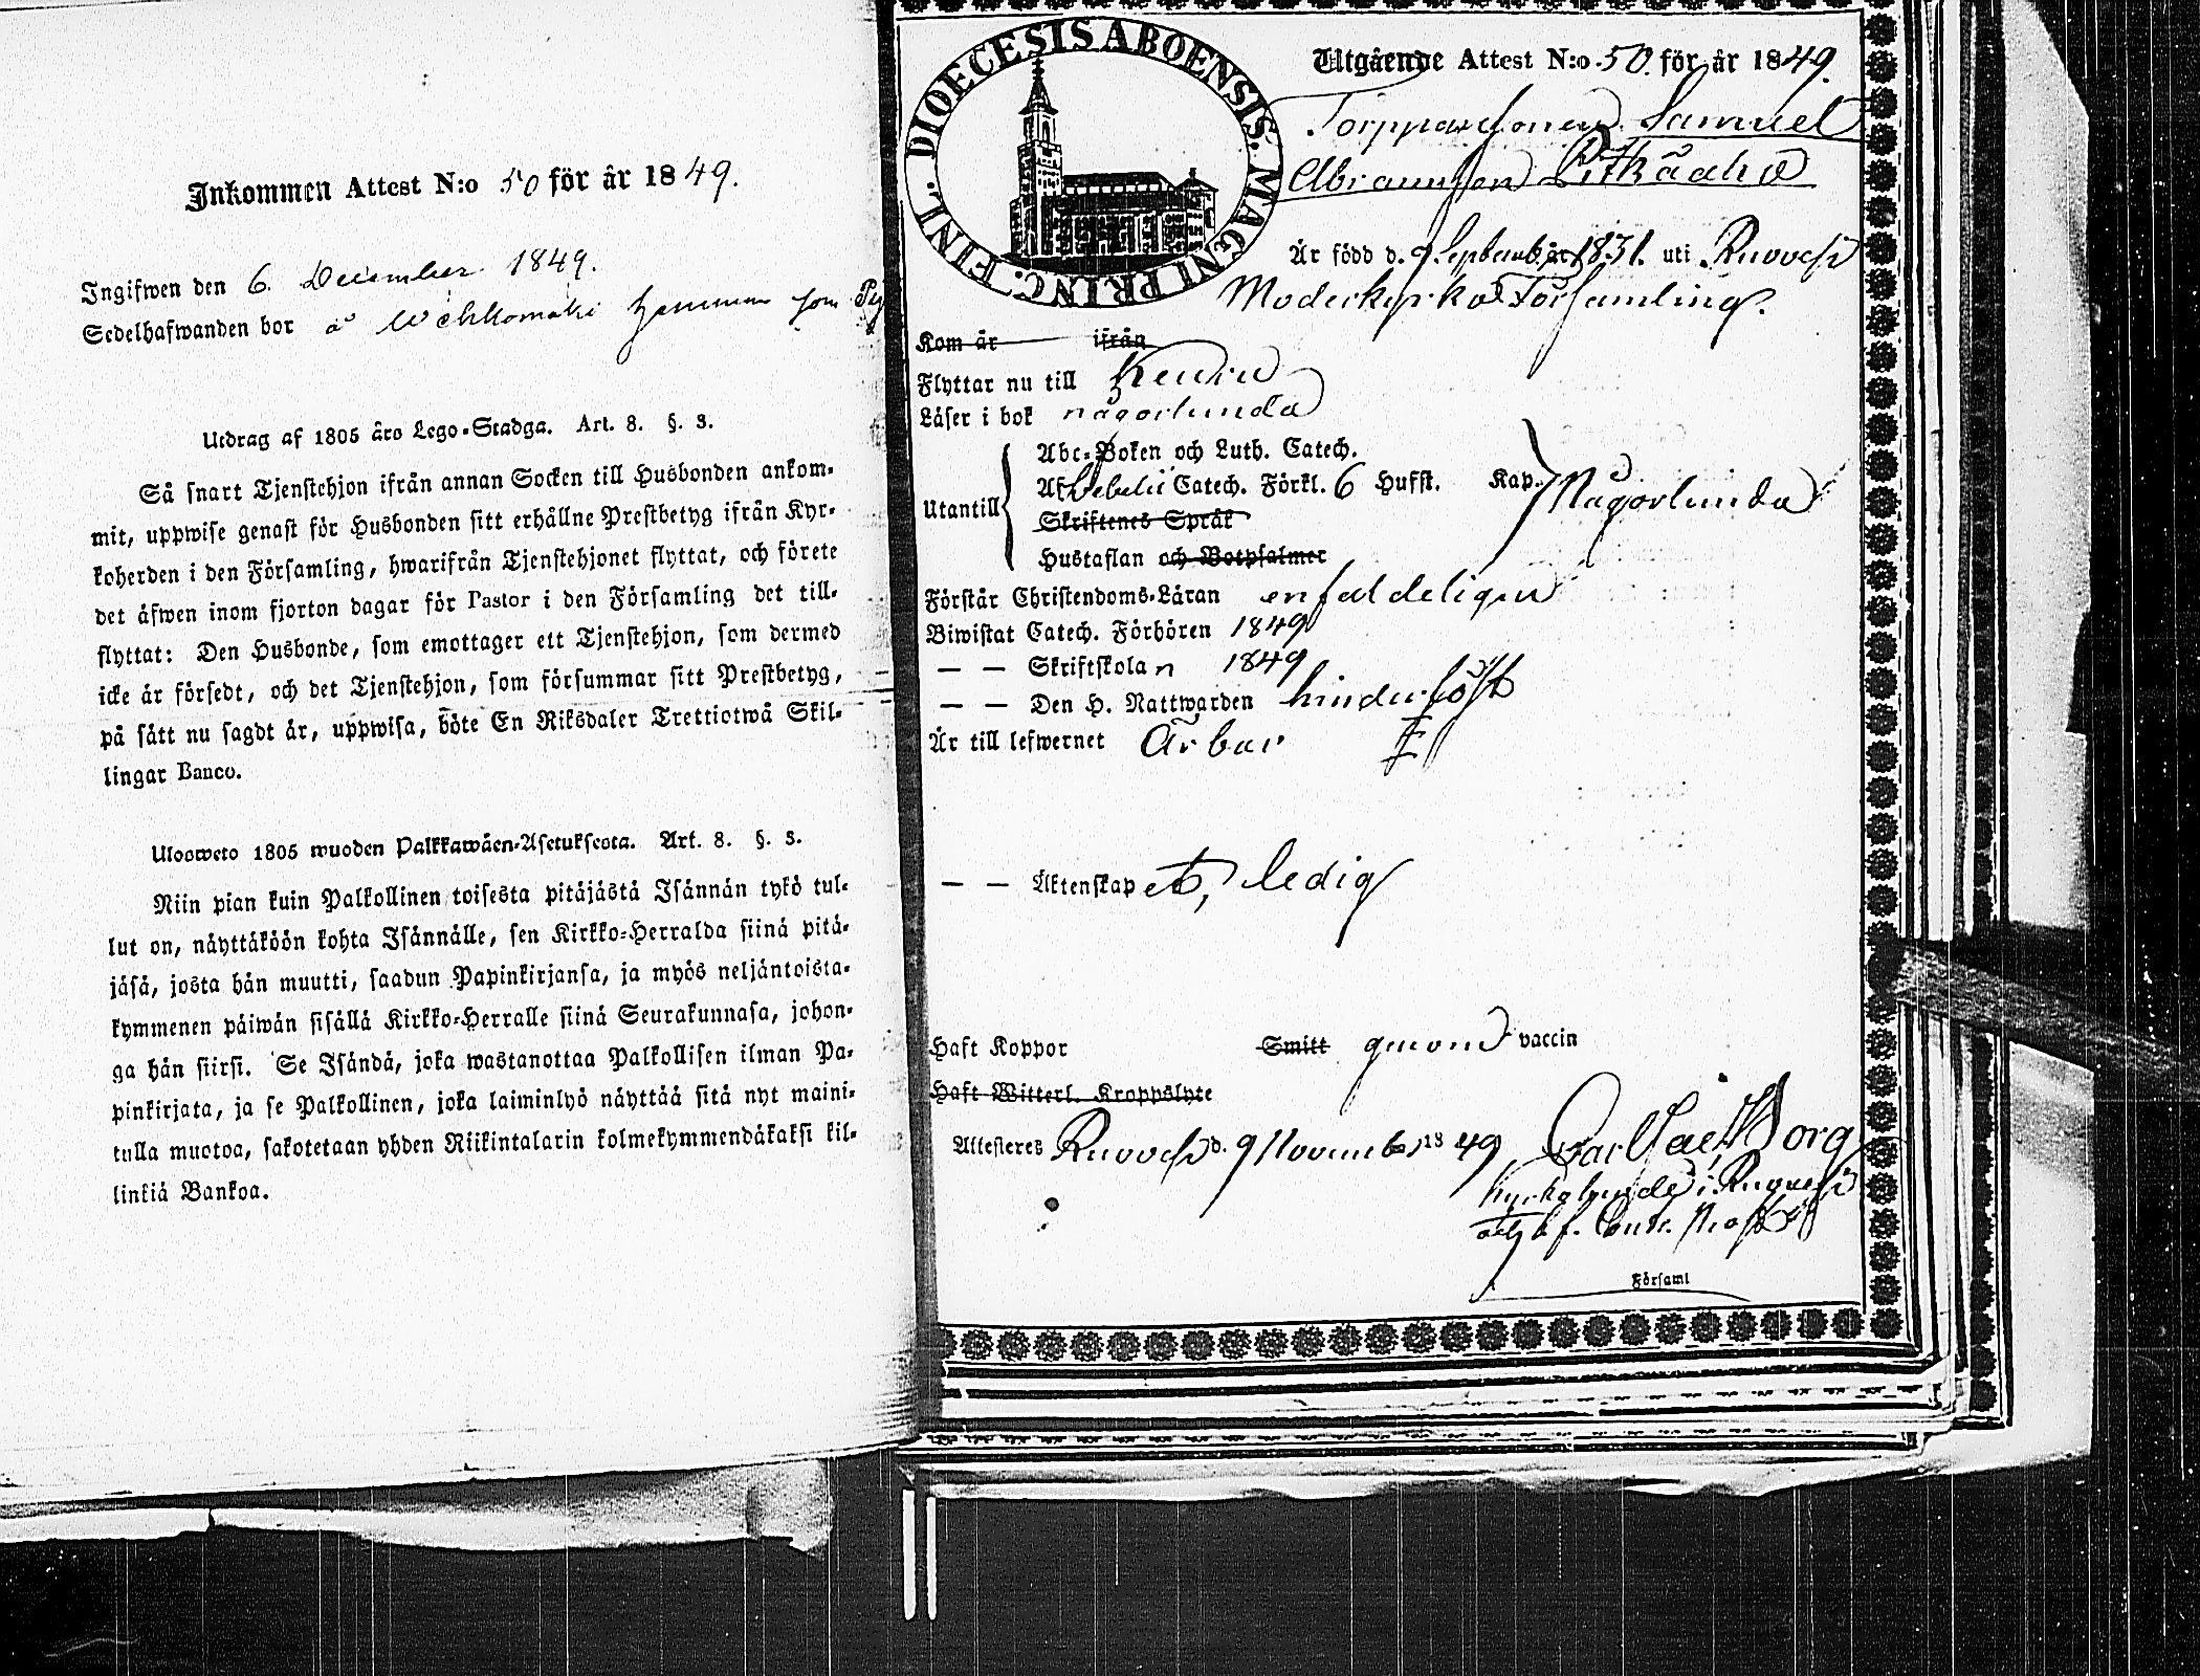 Inkommen Attest N:o 50 för år 1849.
Ingifwen den 6. December 1849.
Sedelhafwanden bor å Wehkomäki hemman som
Utdrag af 1805 års Lego-Stadga. Art. 8. §. 3.
Så snart Tjenstehjon ifrån annan Socken till Husbonden ankom-
mit, uppwise genast för Husbonden sitt erhållne Prestbetyg ifrån Kyr-
koherden i den Församling, hwarifrån Tjenstehjonet flyttat, och förete
det äfwen inom fjorton dagar för Pastor i den Församling det till-
flyttat: Den Husbonde, som emottager ett Tjenstehjon, som dermed
icke är försedt, och det Tjenstehjon, som försummar sitt Prestbetyg,
på sätt nu sagdt är, uppwisa, böte En Riksdaler Trettiotwå Skil-
lingar Banco.
Ulosweto 1805 wuoden Palkkawäen-Asetuksesta. Art. 8. §. 3.
Niin pian kuin Palkollinen toisesta pitäjästä Isännän tykö tul-
lut on, näyttäköön kohta Isännälle, sen Kirkko-Herralda siinä pitä-
jäsä, josta hän muutti, saadun Papinkirjansa, ja myös neljäntoista-
kymmenen päiwän sisällä Kirkko-Herralle siinä Seurakunnasa, johon-
ga hän siirsi. Se Isändä, joka wastanottaa Palkollisen ilman Pa-
pinkirjata, ja se Palkollinen, joka laiminlyö näyttää sitä nyt maini-
tulla muotoa, sakotetaan yhden Riikintalarin kolmekymmendäkaksi kil-
linkiä Bankoa.
DIOECESIS ABOENSIS. MAGNI PRINC. FINL.
Utgående Attest N:o 50. för år 1849.
Torpparsonen Samuel
Abramsson Pitkäaho
Är född d. 9 Septemb. år 1831. uti Ruovesi
Moderkyrko Församling.
Kom år ifrån
Flyttar nu till Keuru
Läser i bok någorlunda
Abc-Boken och Luth. Catech.
Utantill Af Svebelii Catech. Förkl. 6 Hufst. Kap. Någorlunda
Skriftenes Språk
Hustaflan och Botpsalmer
Förstår Christendoms-Läran enfaldeligen
Biwistat Catech. Förhören 1849
— — Skriftskolan 1849
— — Den H. Nattwarden hinderlöst
Är till lefwernet Ärbar
— — Äktenskapet, ledig
Haft Koppor Smitt genom vaccin
Haft Witterl. Kroppslyte
Attesteres Ruovesi d. 9 November 1849 Carl Borg
Kyrkoherde i Ruovesi
Contr. Prost
Församl